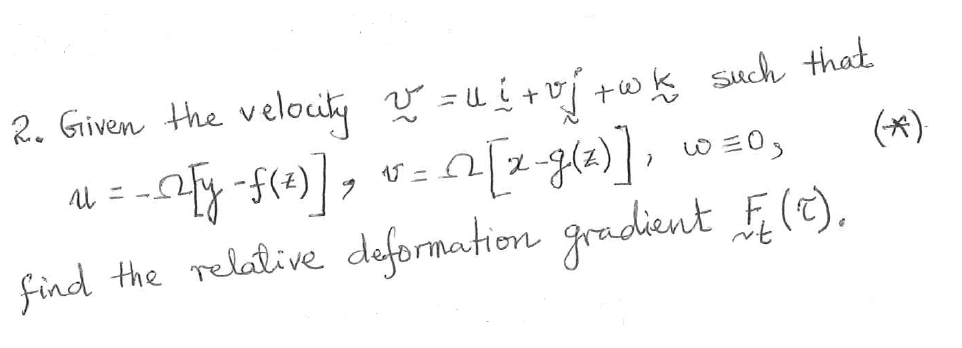 2. Given the velocity v = u i + v j + w k such that
u = -Ω[y - f(z)], v = Ω[x - g(z)], w ≡ 0, (*)
find the relative deformation gradient F_t(τ).